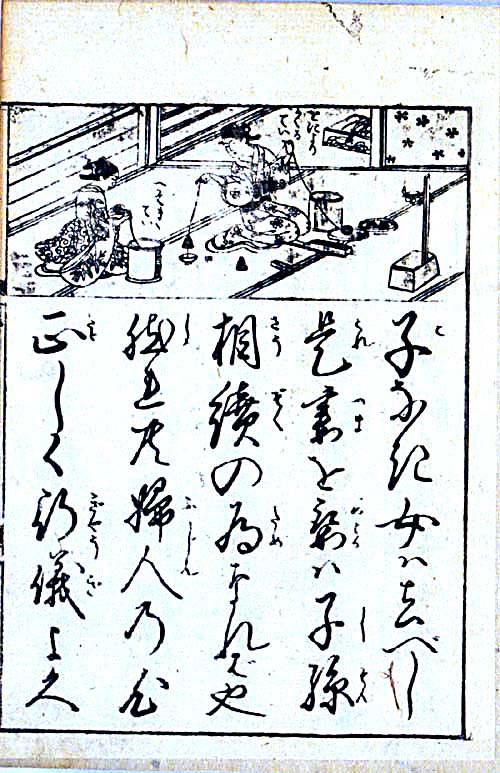 子なき女ハ去べし
是妻を娶ハ子孫
相續の為なれバ也
然れ共婦人の心
正しく行儀よく